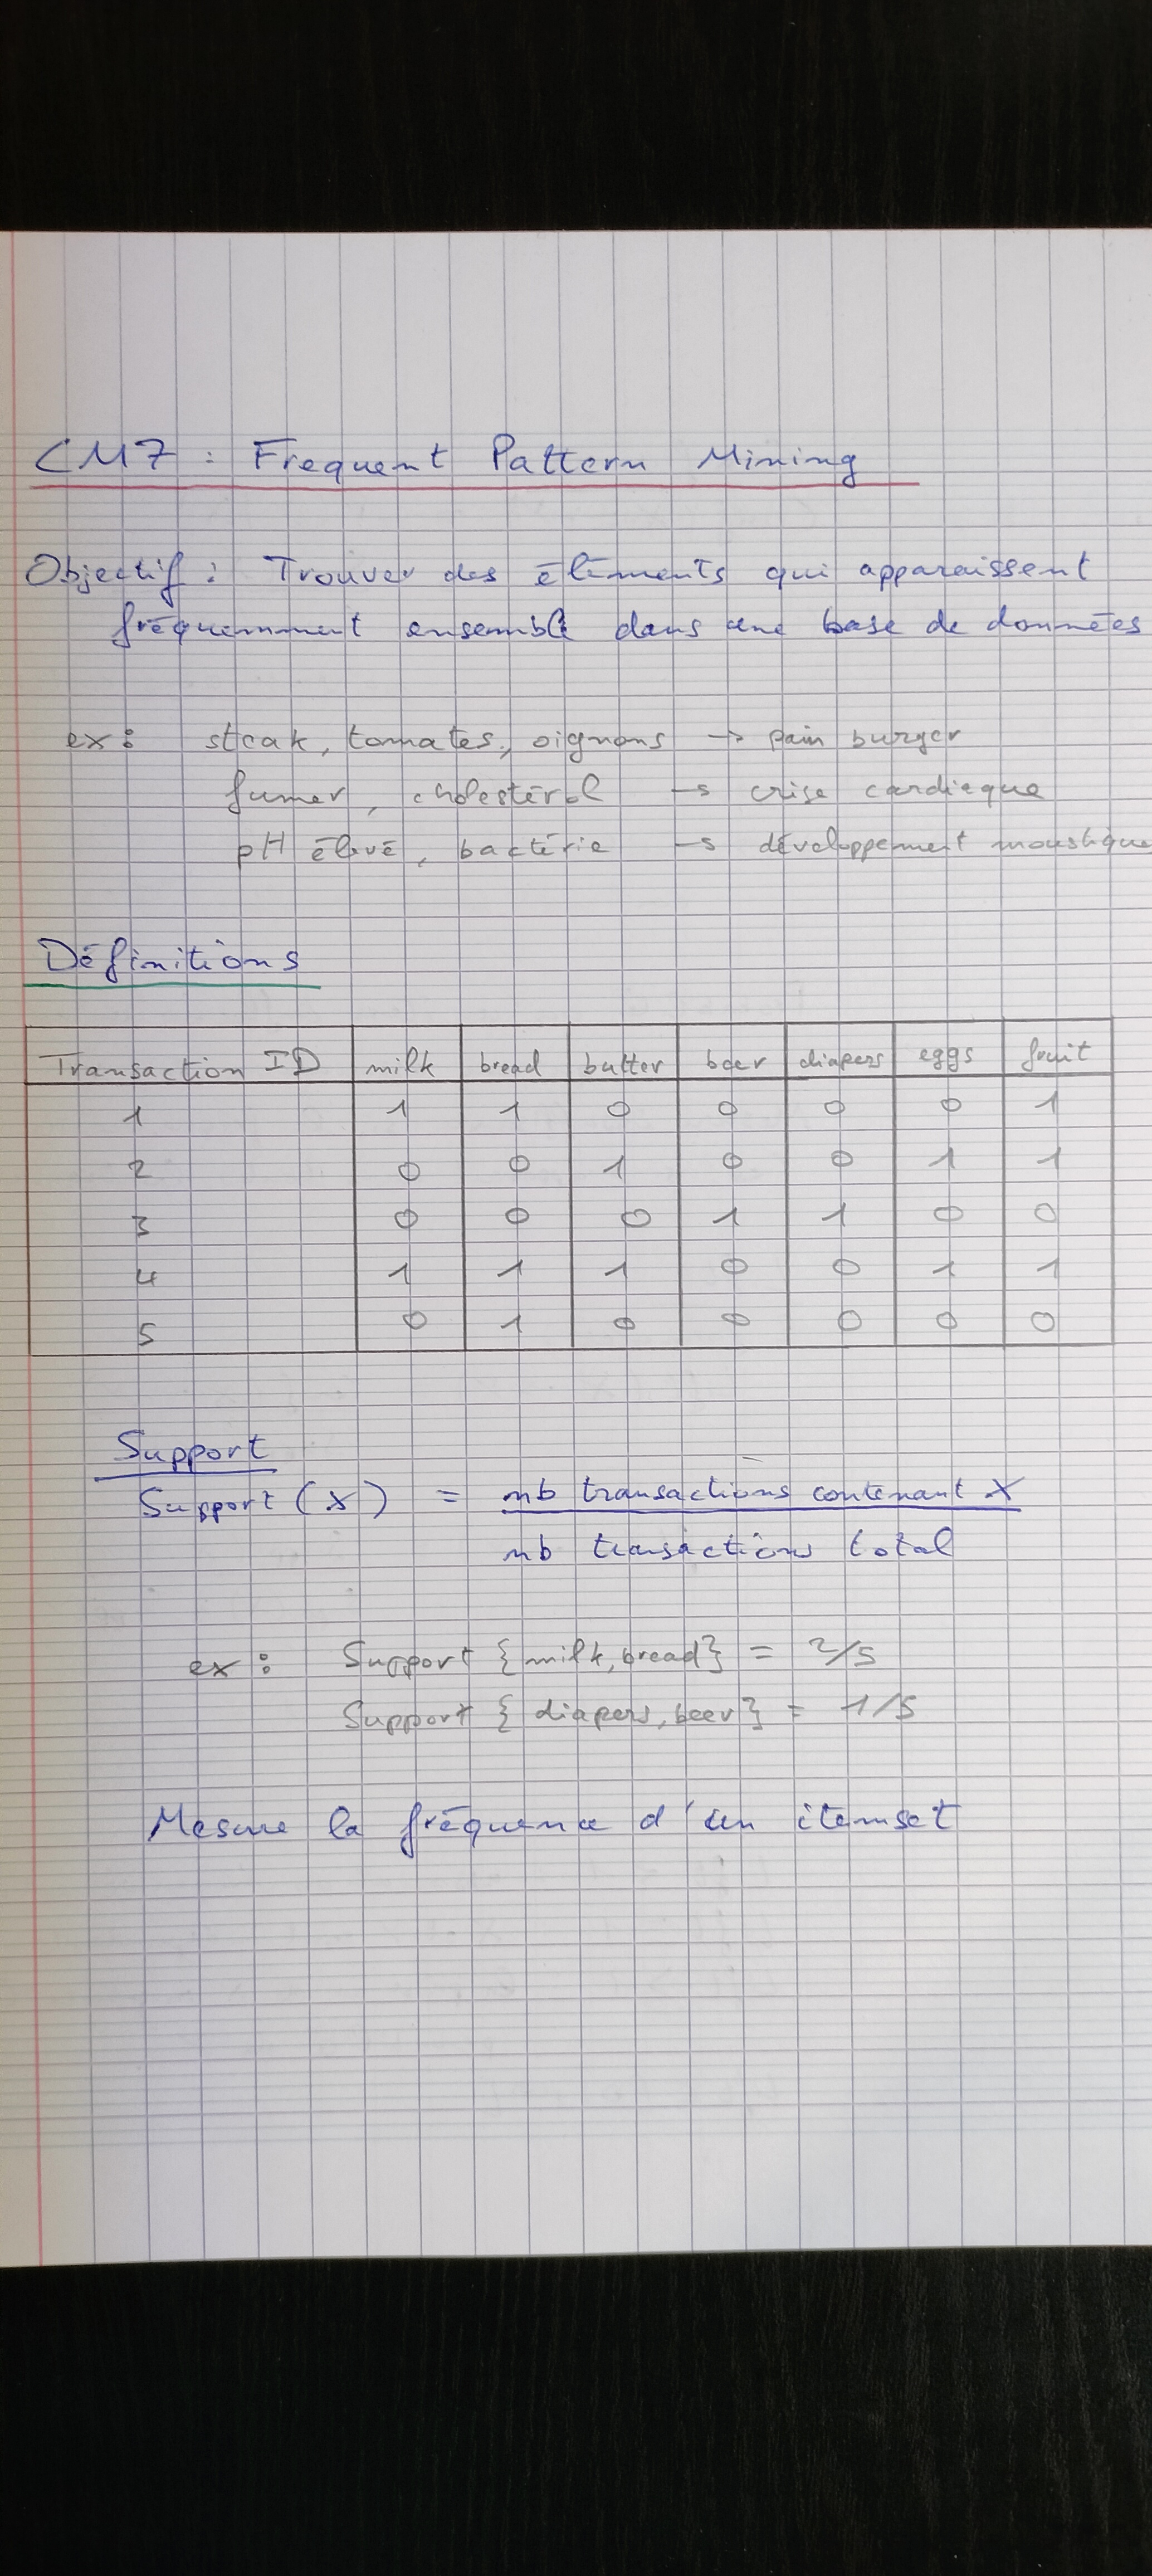 CM7 : Frequent Pattern Mining
Objectif : Trouver des éléments qui apparaissent
fréquemment ensemble dans une base de données
ex : steak, tomates, oignons → pain burger
fumer, cholestérol → crise cardiaque
pH élevé, bactérie → développement moustique
Définitions
Transaction ID milk bread butter beer diapers eggs fruit
1 1 1 0 0 0 0 1
2 0 0 1 0 0 1 1
3 0 0 0 1 1 0 0
4 1 1 1 0 0 1 1
5 0 1 0 0 0 0 0
Support
Support (X) = nb transactions contenant X
nb transactions total
ex : Support {milk, bread} = 2/5
Support {diapers, beer} = 1/5
Mesure la fréquence d'un itemset